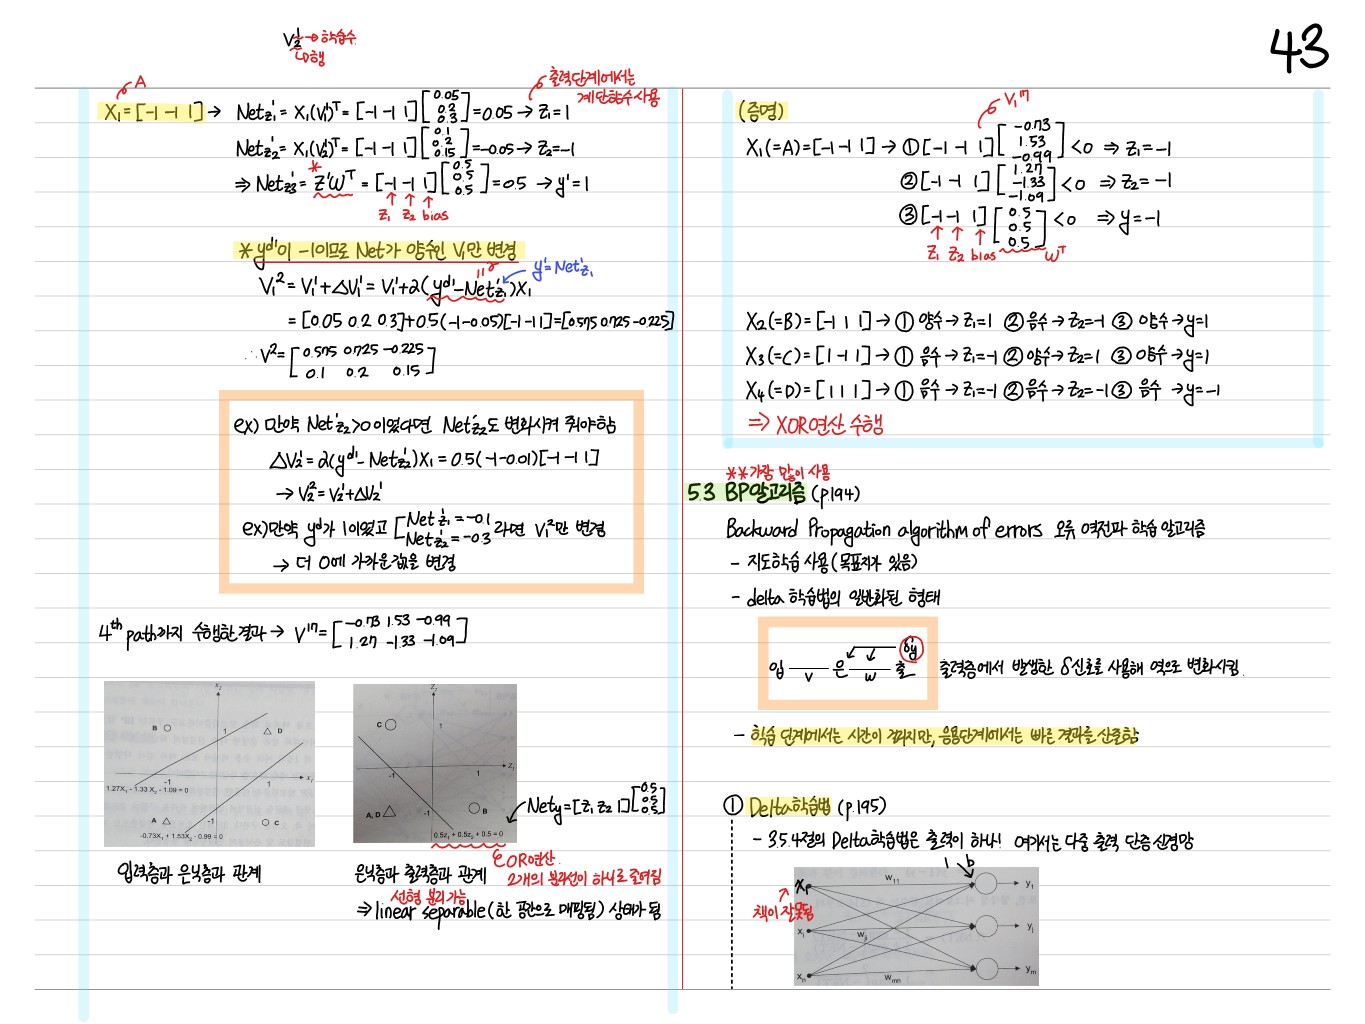 43
V½ → 학습수
↳행
A
X₁=[-1 -1 1] → Net_z₁¹ = X₁(V₁¹)ᵀ = [-1 -1 1] [0.05 0.2 0.3] = 0.05 → Z₁=1
출력단계에서는
계단함수 사용
Net_z₂¹ = X₁(V₂¹)ᵀ = [-1 -1 1] [0.1 0.2 0.15] = -0.05 → Z₂=-1
⇒ Net_z₃¹ = Z¹Wᵀ = [-1 -1 1] [0.5 0.5 0.5] = 0.5 → y¹=1
*
↑ ↑ ↑
Z₁ Z₂ bias
* y^d1이 -1이므로 Net가 양수인 V₁만 변경
V₁² = V₁¹+△V₁¹ = V₁¹+α(y^d1-Net_z₁¹)X₁
y¹=Net_z₁¹
= [0.05 0.2 0.3]+0.5(-1-0.05)[-1 -1 1]=[0.575 0.725 -0.225]
∴ V² = [0.575 0.725 -0.225
0.1 0.2 0.15]
ex) 만약 Net_z₂¹>0이었다면 Net_z₂¹도 변화시켜 줘야함
△V₂¹=α(y^d1-Net_z₂¹)X₁ = 0.5(-1-0.01)[-1 -1 1]
→ V₂²=V₂¹+△V₂¹
ex)만약 y^d가 1이었고 [Net_z₁¹=-0.1
Net_z₂¹=-0.3 라면 V₁²만 변경
→ 더 0에 가까운값을 변경
4th path까지 수행한 결과 → V¹⁷= [-0.73 1.53 -0.99
1.27 -1.33 -1.09]
X₂
B
1
D
X₁
-1
1
1.27X₁ - 1.33 X₂ - 1.09 = 0
A
-1
C
-0.73X₁ + 1.53X₂ - 0.99 = 0
입력층과 은닉층과 관계
Z₂
C
1
-1
1
Z₁
A, D
-1
B
0.5z₁ + 0.5z₂ + 0.5 = 0
Net_y=[Z₁ Z₂ 1][0.5 0.5 0.5]
은닉층과 출력층과 관계
OR연산
2개의 분리선이 하나로 줄여짐
선형 분리 가능
⇒ linear separable (한 평면으로 매핑됨) 상태가 됨
(증명)
V₁¹⁷
X₁(=A)=[-1 -1 1] → ① [-1 -1 1] [-0.73 1.53 -0.99] <0 ⇒ Z₁=-1
② [-1 -1 1] [1.27 -1.33 -1.09] <0 ⇒ Z₂=-1
③ [-1 -1 1] [0.5 0.5 0.5] <0 ⇒ y=-1
↑ ↑ ↑
Z₁ Z₂ bias Wᵀ
X₂(=B)=[-1 1 1] → ① 양수→Z₁=1 ② 음수→Z₂=-1 ③ 양수→y=1
X₃(=C)=[1 -1 1] → ① 음수→Z₁=-1 ② 양수→Z₂=1 ③ 양수→y=1
X₄(=D)=[1 1 1] → ① 음수→Z₁=-1 ② 음수→Z₂=-1 ③ 음수→y=-1
⇒ XOR연산 수행
**가장 많이 사용
5.3 BP알고리즘 (p.194)
Backward Propagation algorithm of errors 오류 역전파 학습 알고리즘
- 지도학습 사용(목표치가 있음)
- delta 학습법의 일반화된 형태
δy
입 은 출
V W
출력층에서 발생한 δ신호를 사용해 역으로 변화시킴.
- 학습 단계에서는 시간이 걸리지만, 응용단계에서는 빠른 결과를 산출함
① Delta학습법 (p.195)
- 3.5.4절의 Delta학습법은 출력이 하나! 여기서는 다중 출력 단층 신경망
1 b
X₁
w₁₁
y₁
책이 잘못됨
xᵢ
wⱼᵢ
yⱼ
xₙ
wₘₙ
yₘ